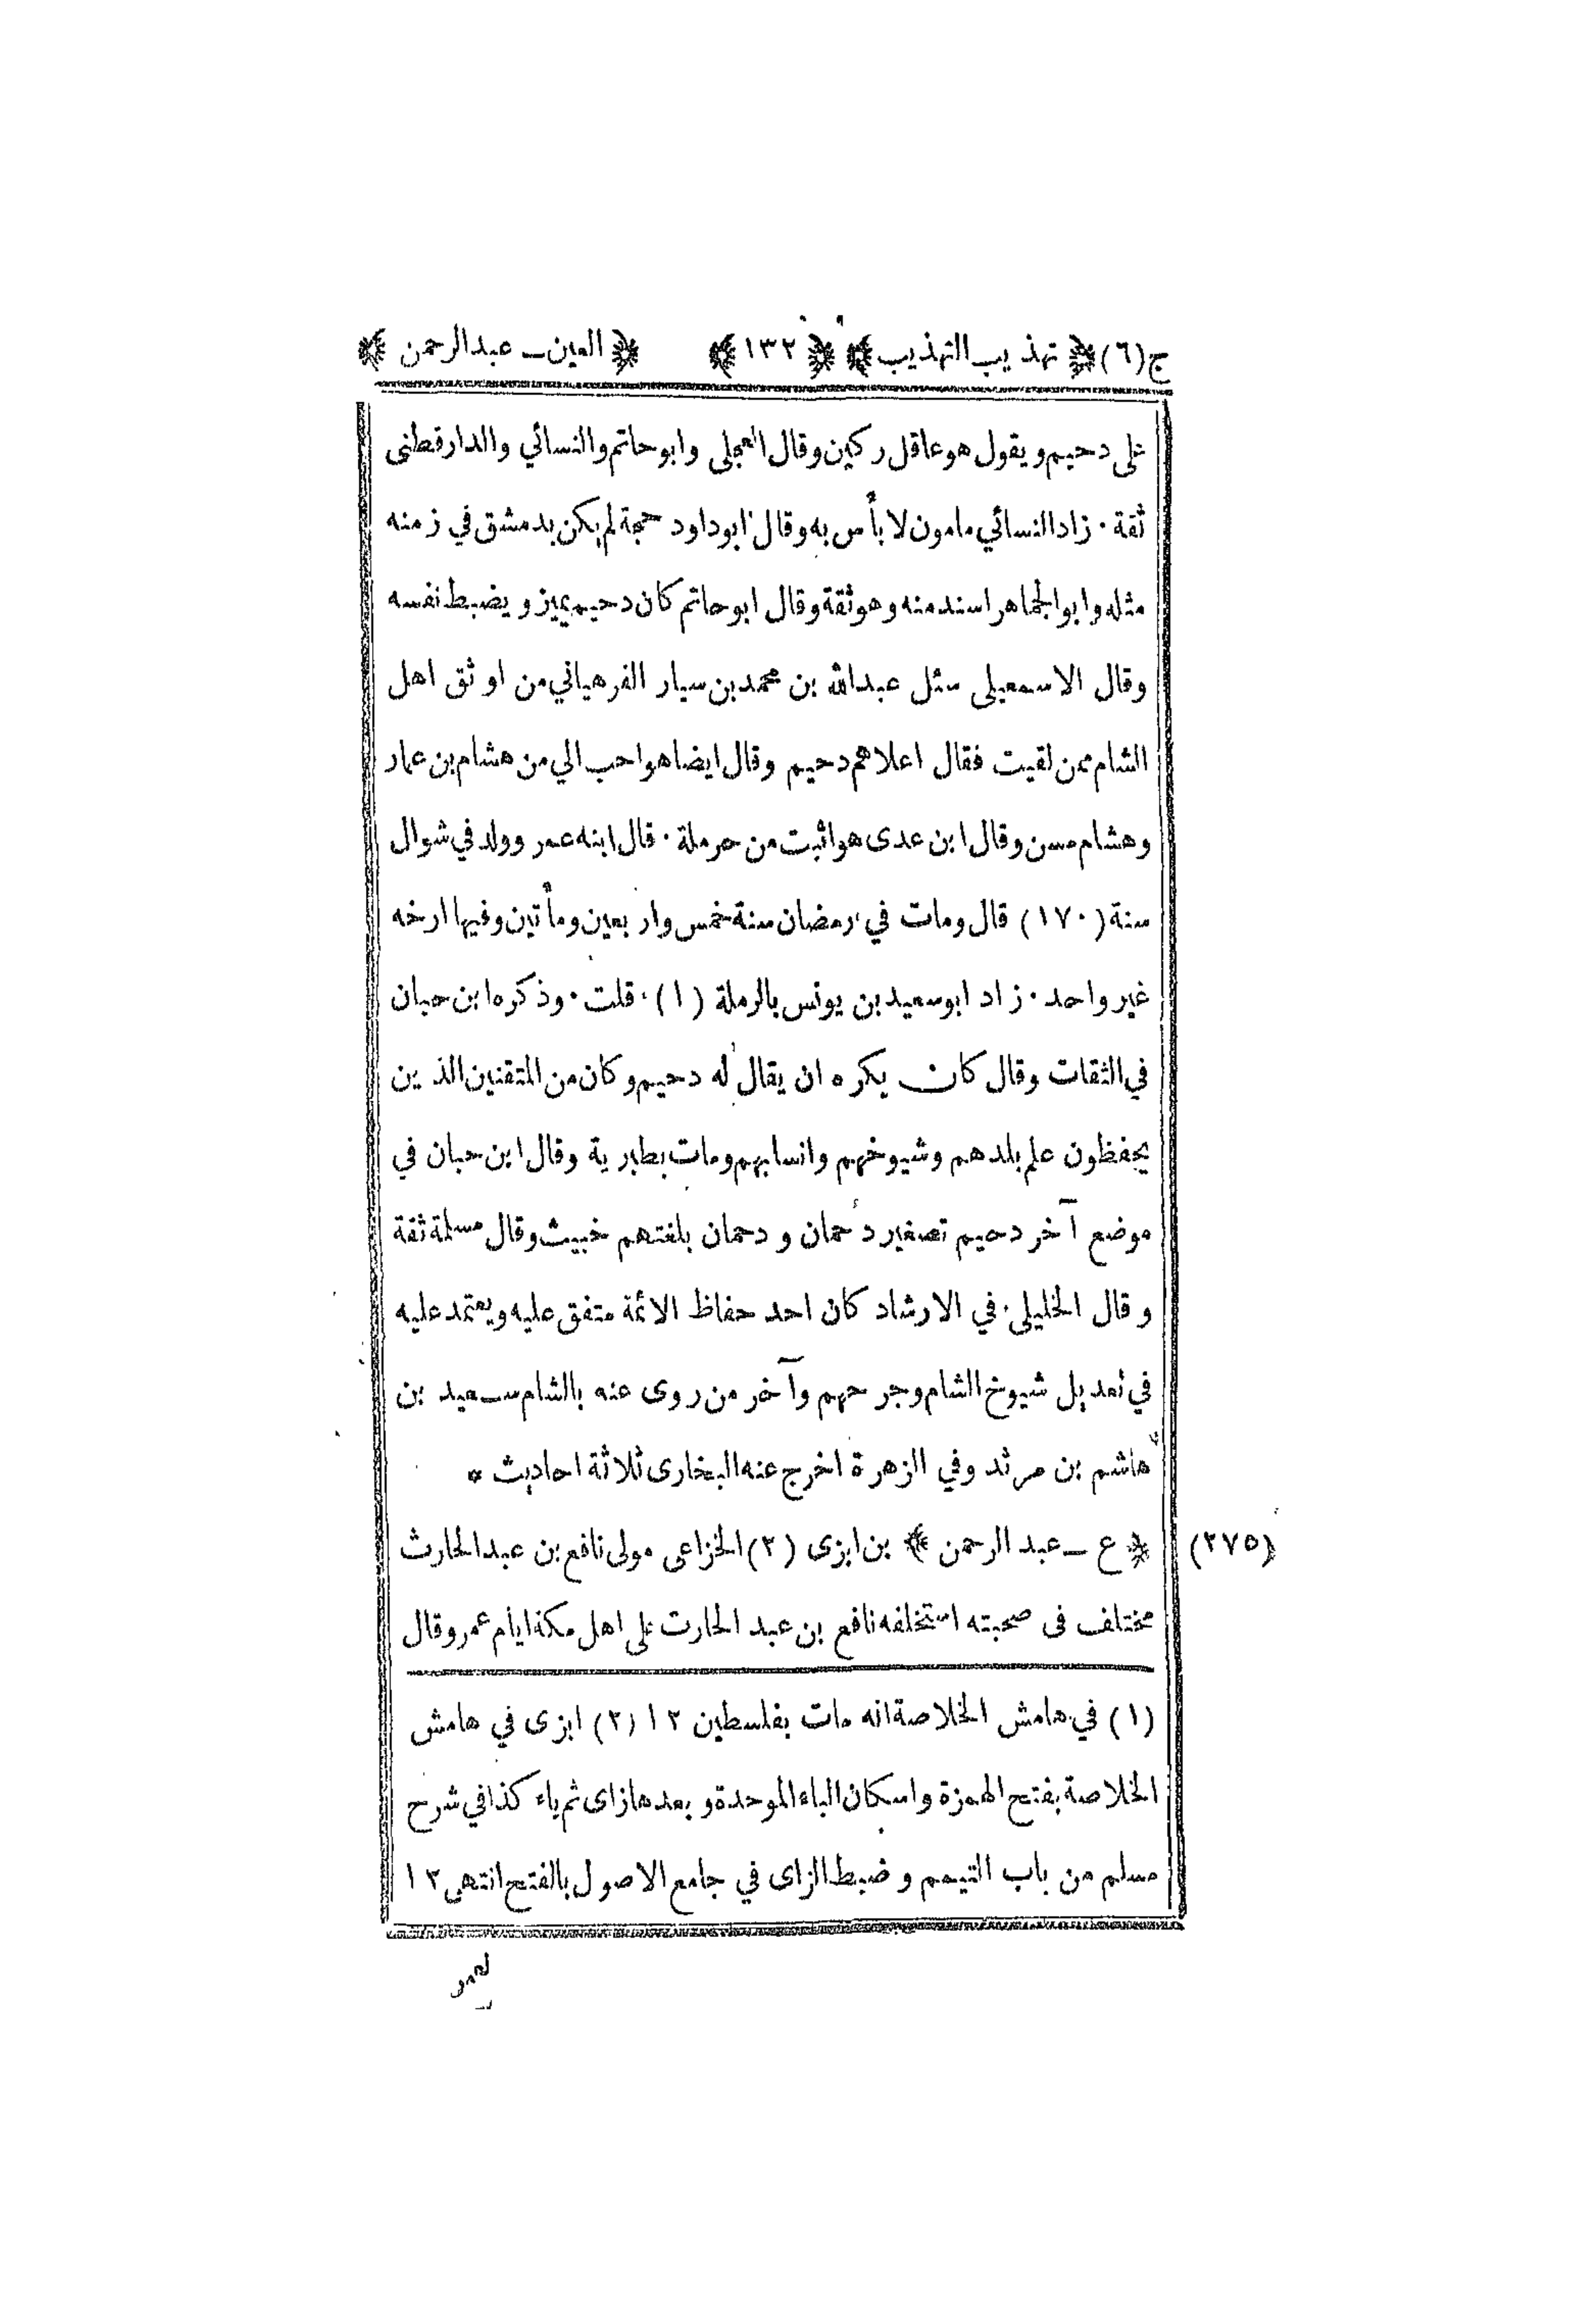 ج(٦) ﴿ تهذيب التهذيب ﴾ ﴿ ١٣٢ ﴾ ﴿ العين ــ عبدالرحمن ﴾
على دحيم ويقول هو عاقل ركين وقال العجلى وابو حاتم والنسائي والدارقطنى
ثقة · زاد النسائي مامون لا بأس به وقال ابوداود حجة لم يكن بدمشق في زمنه
مثله وابو الجماهر اسند منه وهو ثقة وقال ابو حاتم كان دحيم يميز ويضبط نفسه
وقال الاسمعيلى سئل عبدالله بن محمد بن سيار الفرهياني من اوثق اهل
الشام ممن لقيت فقال اعلاهم دحيم وقال ايضا هو احب الي من هشام بن عمار
وهشام مسن وقال ابن عدى هو اثبت من حرملة · قال ابنه عمر وولد في شوال
سنة (١٧٠) قال ومات في رمضان سنة خمس واربعين ومأتين وفيها ارخه
غير واحد · زاد ابو سعيد بن يونس بالرملة (١) · قلت · وذكره ابن حبان
في الثقات وقال كان يكره ان يقال له دحيم وكان من المتقنين الذين
يحفظون علم بلدهم وشيوخهم وانسابهم ومات بطبرية وقال ابن حبان في
موضع آخر دحيم تصغير دحمان و دحمان بلغتهم خبيث وقال مسلمة ثقة
وقال الخليلى في الارشاد كان احد حفاظ الائمة متفق عليه ويعتمد عليه
في تعديل شيوخ الشام وجرحهم وآخر من روى عنه بالشام سعيد بن
هاشم بن مرثد وفي الزهرة اخرج عنه البخارى ثلاثة احاديث *
(٢٧٥) ﴿ ع ــ عبد الرحمن ﴾ بن ابزى (٢) الخزاعى مولى نافع بن عبدالحارث
مختلف فى صحبته استخلفه نافع بن عبد الحارث على اهل مكة ايام عمر وقال
(١) في هامش الخلاصة انه مات بفلسطين ١٢ (٢) ابزى في هامش
الخلاصة بفتح الهمزة واسكان الباء الموحدة و بعدها زاى ثم ياء كذا في شرح
مسلم من باب التيمم و ضبط الزاى في جامع الاصول بالفتح انتهى ١٢